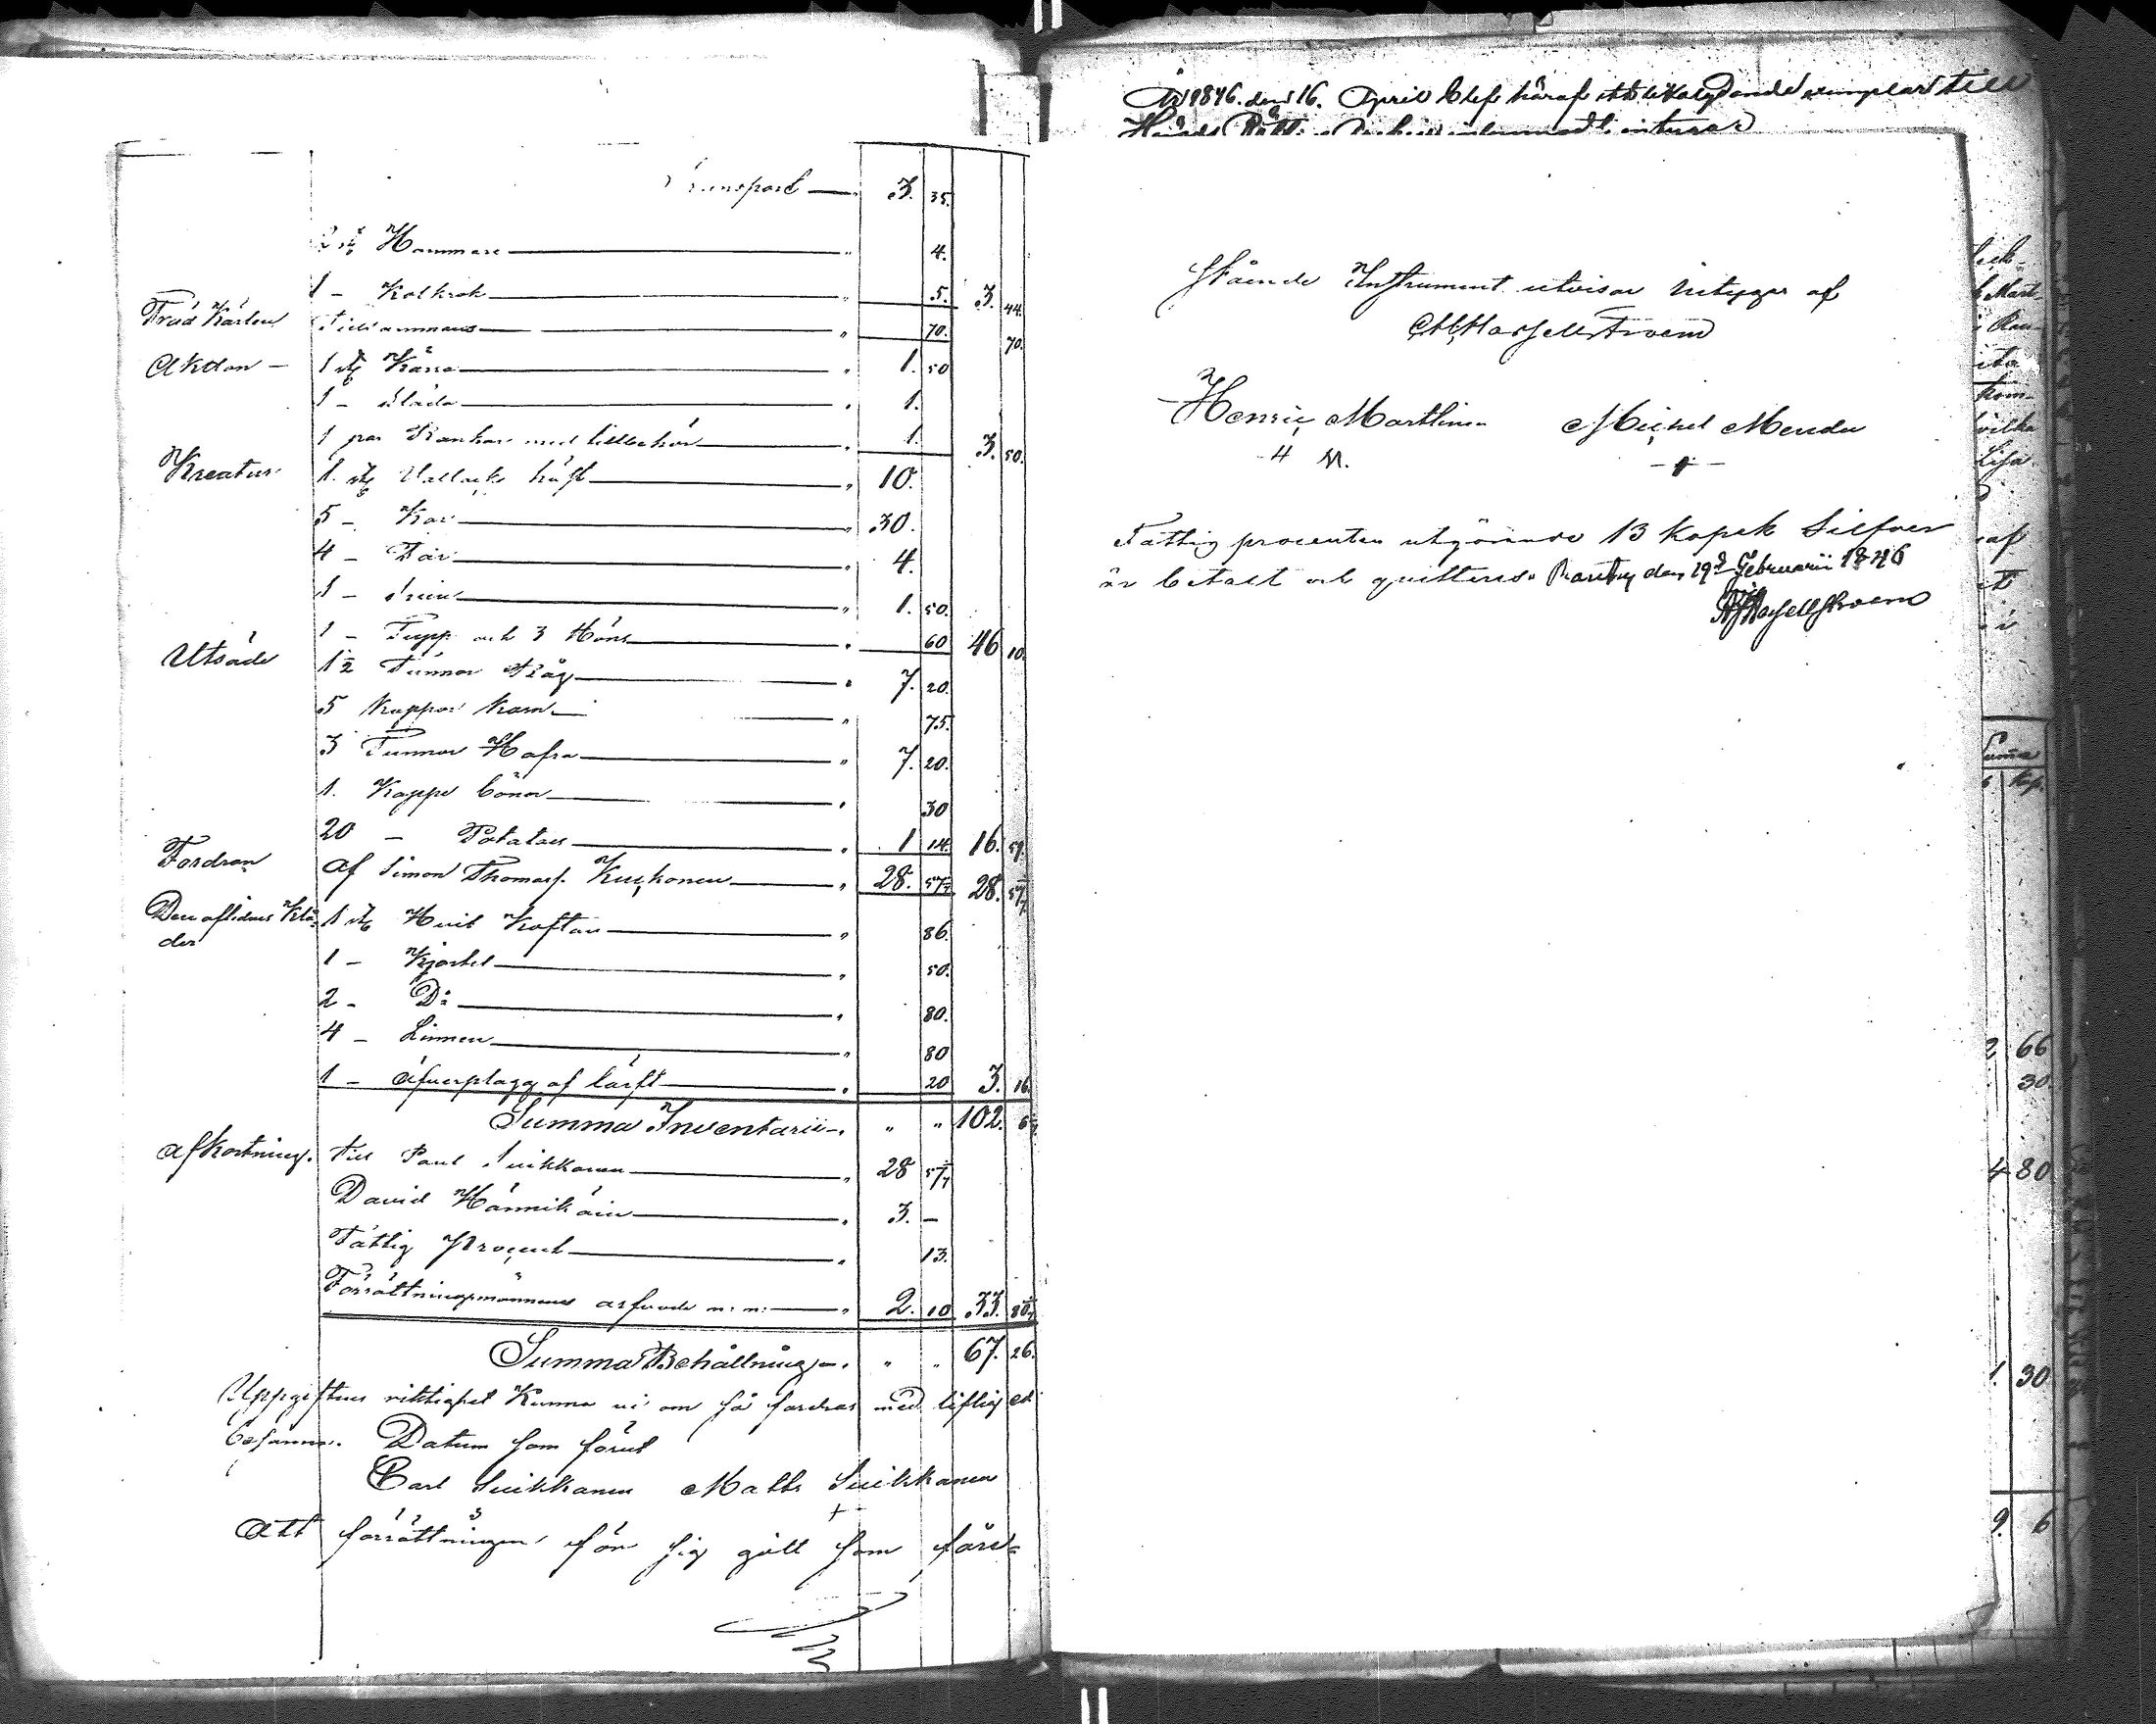 Transport — " 3. 35.
2 st Hammare — " 4.
1 - Kolkrok — " 5. 3. 44.
Träd Kärlen Tillsammans — " 70. 70.
Åkdon - 1 st Kärra — " 1. 50
1 - Släda — " 1.
1 par Rankor med tillbehör — " 1. 3. 50.
Kreatur 1. st Vallack häst — " 10.
5 - Kor — " 30.
4 - Får — " 4.
1 - Svin — " 1. 50.
1 - Tupp och 3 Höns — " 60 46 10.
Utsäde 1½ Tunnor Råg — " 7. 20.
5 Kappar Korn — " 75.
3 Tunnor Hafra — " 7. 20.
1. Kappe bönor — " 30
20 - Potatoes — " 1 14. 16. 59.
Fordran Af Simon Thomass. Kuckonen — " 28. 57 1/7 28. 57 1/7
Den aflidnes Klä= 1 st Hvit Koftan — " 86.
der
1 - Kjortel — " 50.
2 - D:o — " 80.
4 - Linnen — " 80
1 - Öfverplagg af lärft — " 20 3. 16.
Summa Inventarii —. " " 102. 6 1/7
Afkortning. Till Paul Suikkanen — " 28 57 1/7
David Hännikäin — " 3. —
Fattig Procent — " 13.
Förrättningsmännens arfvode m: m: — " 2. 10 33. 80 1/7
Summa Behållning —. " " 67. 26.
Uppgiftens riktighet Kunna vi om så fordras med liflig ed
besanna. Datum som förut
Carl Suikkanen Matts Suikkanen
+
Att förrättningen för sig gått som före=
År 1846. den 16. April blef häraf ett lika lydande exemplar till
Härads Rätts Archivet inlemnadt
stående Instrument utvisar betygar af
Hasselstroem
Henric Marttinen Michel Mendu
4 M. - + -
Fattig procenten utgörande 13 kopek Silfver
är betalt och quitteras. den 19d Februarii 1846
Hasselstroem
Summa
Kp.
2 66
30.
4 80
1. 30
9. 6